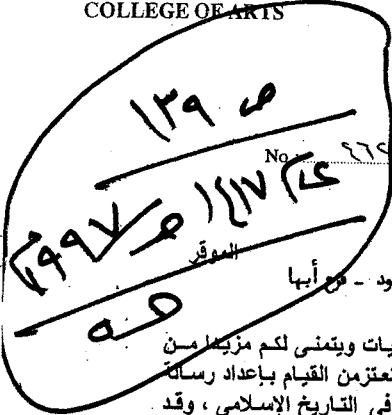 COLLEGE OF ARTS
ص ١٣٩
No. ٩٦٢
عام ١٤١٧ هـ / ١٩٩٧م
الموقر
ود - فرع أبها
هـ
يات ويتمنى لكم مزيدا من
تعتزمن القيام بإعداد رسالة
في التاريخ الإسلامي ، وقد